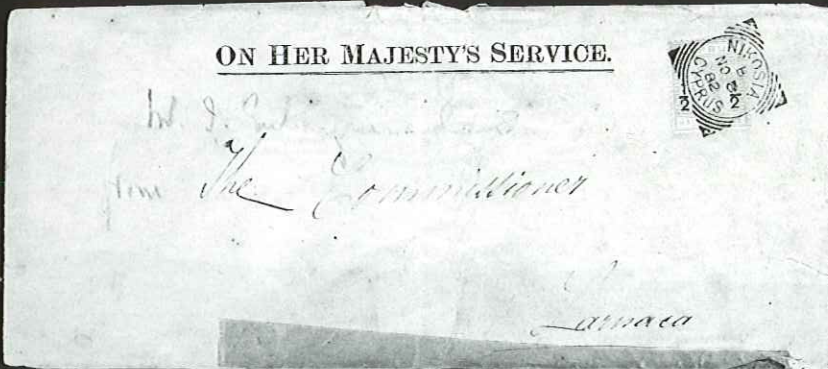 ON HER MAJESTY'S SERVICE.
NIKOSIA
B
NO
82
CYPRUS
2
from The Commissioner
Larnaca